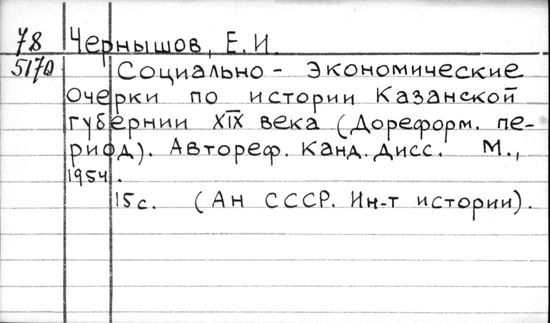 78 Чернышов, Е.И.
5170 Социально - экономические
очерки по истории Казанской
губернии XIX века (Дореформ. пе-
риод). Автореф. канд. дисс. М.,
1954.
15 с. (Ан СССР. Ин-т истории).